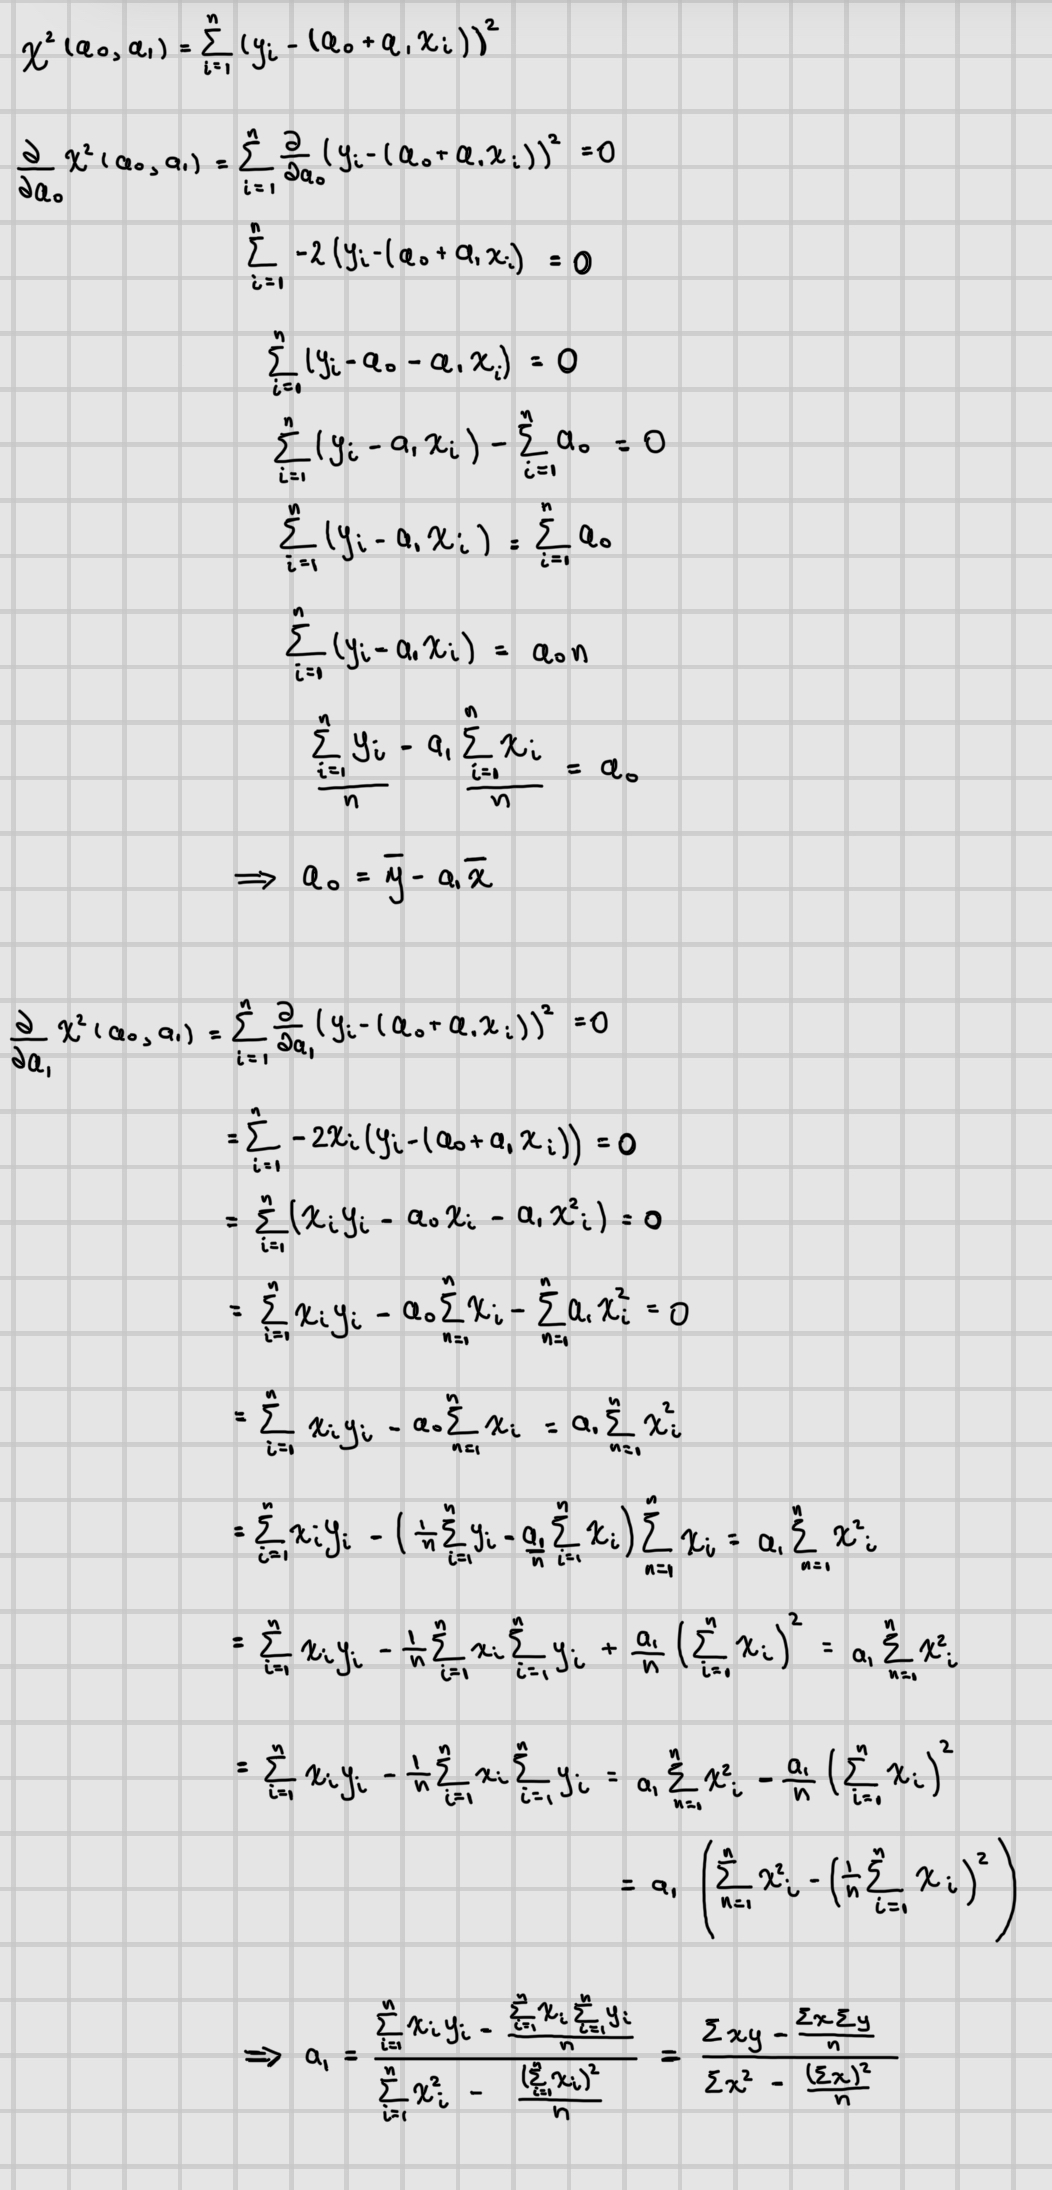 χ²(a₀, a₁) = ∑_{i=1}^{n} (y_i - (a₀ + a₁x_i))²
∂/∂a₀ χ²(a₀, a₁) = ∑_{i=1}^{n} ∂/∂a₀ (y_i - (a₀ + a₁x_i))² = 0
∑_{i=1}^{n} -2(y_i - (a₀ + a₁x_i) = 0
∑_{i=1}^{n} (y_i - a₀ - a₁x_i) = 0
∑_{i=1}^{n} (y_i - a₁x_i) - ∑_{i=1}^{n} a₀ = 0
∑_{i=1}^{n} (y_i - a₁x_i) = ∑_{i=1}^{n} a₀
∑_{i=1}^{n} (y_i - a₁x_i) = a₀n
(∑_{i=1}^{n} y_i)/n - a₁ (∑_{i=1}^{n} x_i)/n = a₀
⟹ a₀ = ȳ - a₁x̄
∂/∂a₁ χ²(a₀, a₁) = ∑_{i=1}^{n} ∂/∂a₁ (y_i - (a₀ + a₁x_i))² = 0
= ∑_{i=1}^{n} -2x_i(y_i - (a₀ + a₁x_i)) = 0
= ∑_{i=1}^{n} (x_i y_i - a₀x_i - a₁x²_i) = 0
= ∑_{i=1}^{n} x_i y_i - a₀ ∑_{n=1}^{n} x_i - ∑_{n=1}^{n} a₁x²_i = 0
= ∑_{i=1}^{n} x_i y_i - a₀ ∑_{n=1}^{n} x_i = a₁ ∑_{n=1}^{n} x²_i
= ∑_{i=1}^{n} x_i y_i - (1/n ∑_{i=1}^{n} y_i - a₁/n ∑_{i=1}^{n} x_i) ∑_{n=1}^{n} x_i = a₁ ∑_{n=1}^{n} x²_i
= ∑_{i=1}^{n} x_i y_i - 1/n ∑_{i=1}^{n} x_i ∑_{i=1}^{n} y_i + a₁/n (∑_{i=1}^{n} x_i)² = a₁ ∑_{n=1}^{n} x²_i
= ∑_{i=1}^{n} x_i y_i - 1/n ∑_{i=1}^{n} x_i ∑_{i=1}^{n} y_i = a₁ ∑_{n=1}^{n} x²_i - a₁/n (∑_{i=1}^{n} x_i)²
= a₁ (∑_{n=1}^{n} x²_i - (1/n ∑_{i=1}^{n} x_i)²)
⟹ a₁ = (∑_{i=1}^{n} x_i y_i - (∑_{i=1}^{n} x_i ∑_{i=1}^{n} y_i)/n) / (∑_{i=1}^{n} x²_i - (∑_{i=1}^{n} x_i)²/n) = (Σxy - (ΣxΣy)/n) / (Σx² - (Σx)²/n)